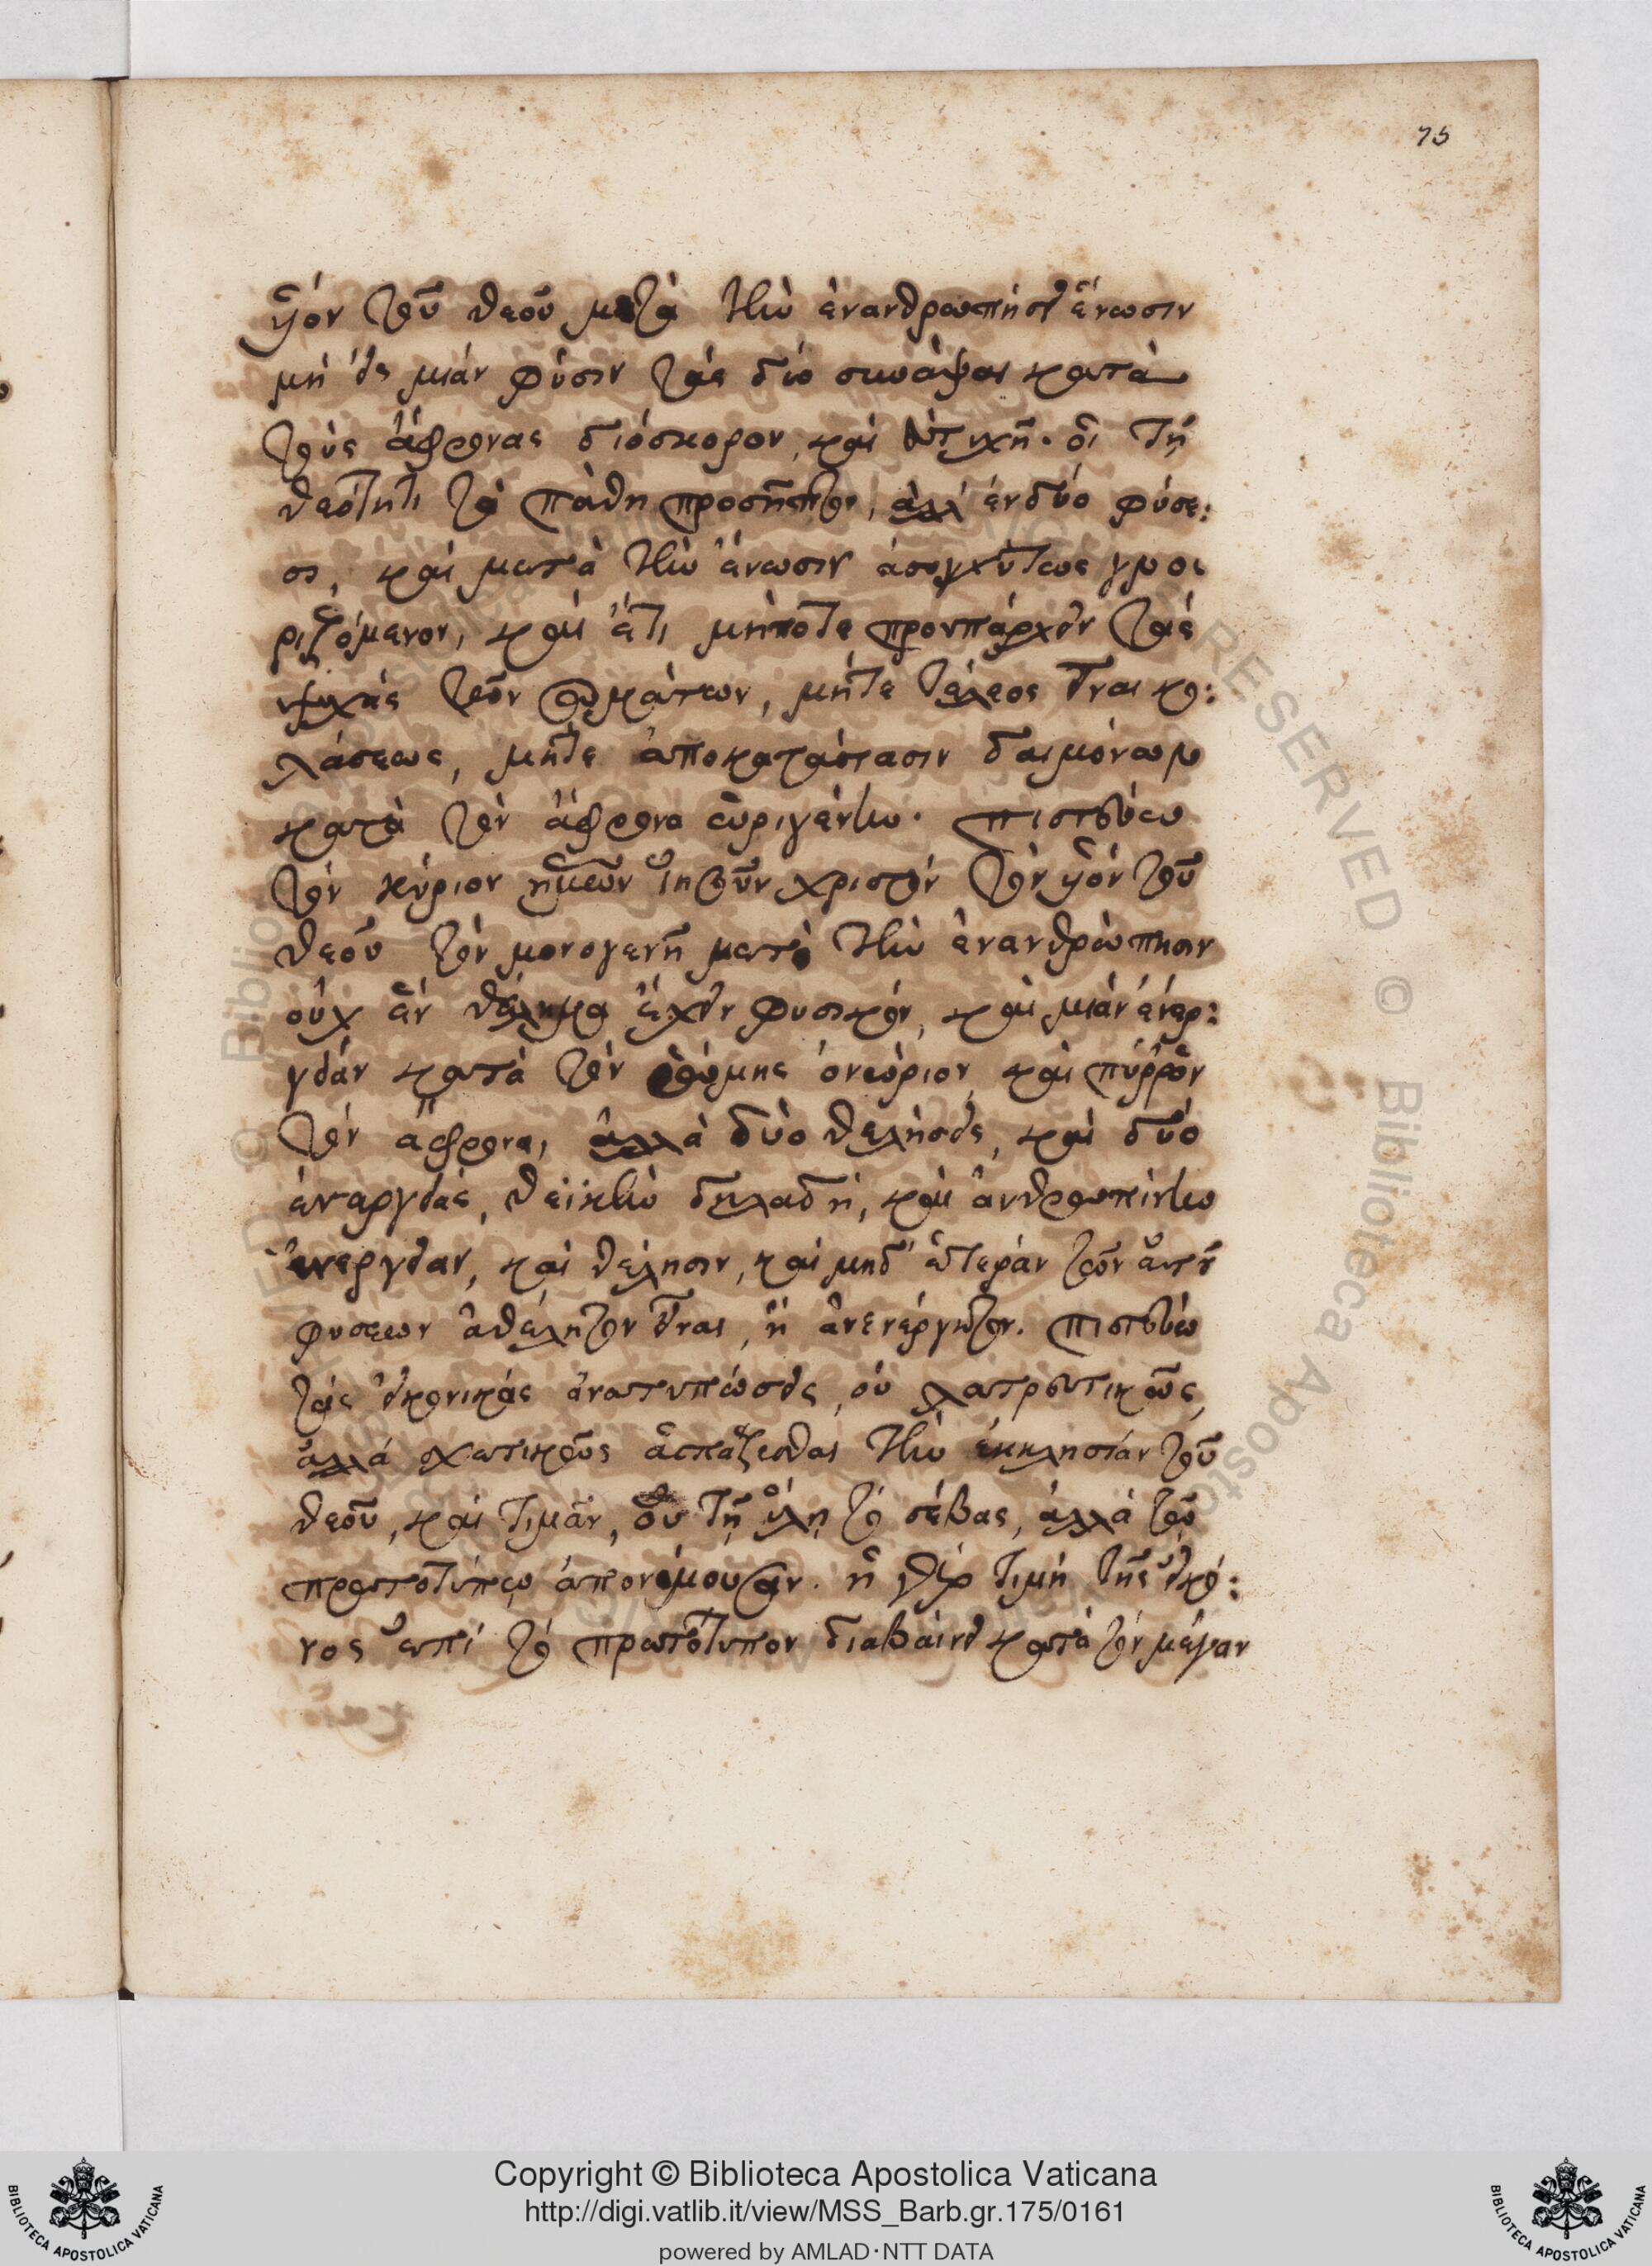 75
ὑιὸν τοῦ θεοῦ μετὰ τὴν ἐνανθρωπήσει ἕνωσιν
μὴ δε μιάν φύσιν τὰς δύο συνάψαι κατὰ
τοὺς ἄφρονας διόσκορον, καὶ εὐτυχῆ. οἳ τῇ
θεότητι τὰ πάθη προσῆπτον, ἀλλ' ἐν δύο φύσε:
σι, καὶ μετὰ τὴν ἕνωσιν ἀσυγχύτως γνω
ριζόμενον, καὶ ἔτι μήποτε προυπάρχειν τὰς
ψυχὰς τῶν σωμάτων, μήτε τέλεος εἶναι κο:
λάσεως, μήτε ἀποκατάστασιν δαιμόνων
κατὰ τὸν ἄφρονα ὠριγένην. πιστεύω
τὸν κύριον ἡμῶν ἰησοῦν χριστὸν τὸν ὑιὸν τοῦ
θεοῦ τὸν μονογενῆ μετὰ τὴν ἐνανθρώπησιν
οὐχ ἓν θέλημα ἔχειν φυσικὸν, καὶ μιὰν ἐνέρ:
γειάν κατὰ τὸν ῥώμης ὀνώριον, καὶ πύρρον
τὸν ἄφρονα, ἀλλὰ δύο θελήσεις, καὶ δύο
ἐνεργείας, θεϊκὴν δηλαδὴ, καὶ ἀνθρωπίνην
ἐνεργειαν, καὶ θέλησιν, καὶ μηδ' ἑτερὰν τῶν αὐτοῦ
φυσεων ἀθέλητον εἶναι, ἢ ἀνενέργητον. πιστεύω
τὰς εἰκονικὰς ἀνατυπώσεις, οὐ λατρευτικῶς,
ἀλλὰ σχετικῶς ἀσπάζεσθαι τὴν ἐκκλησίαν τοῦ
θεοῦ, καὶ τιμᾶν, οὐ τῇ ὕλῃ τὸ σέβας, ἀλλὰ τῷ
πρωτοτύπῳ ἀπονέμουσαν. ἡ γὰρ τιμὴ τῆς εἰκό:
νος ἐπὶ τὸ πρωτότυπον διαβαίνει κατὰ τὸν μέγαν
Copyright © Biblioteca Apostolica Vaticana
http://digi.vatlib.it/view/MSS_Barb.gr.175/0161
powered by AMLAD·NTT DATA